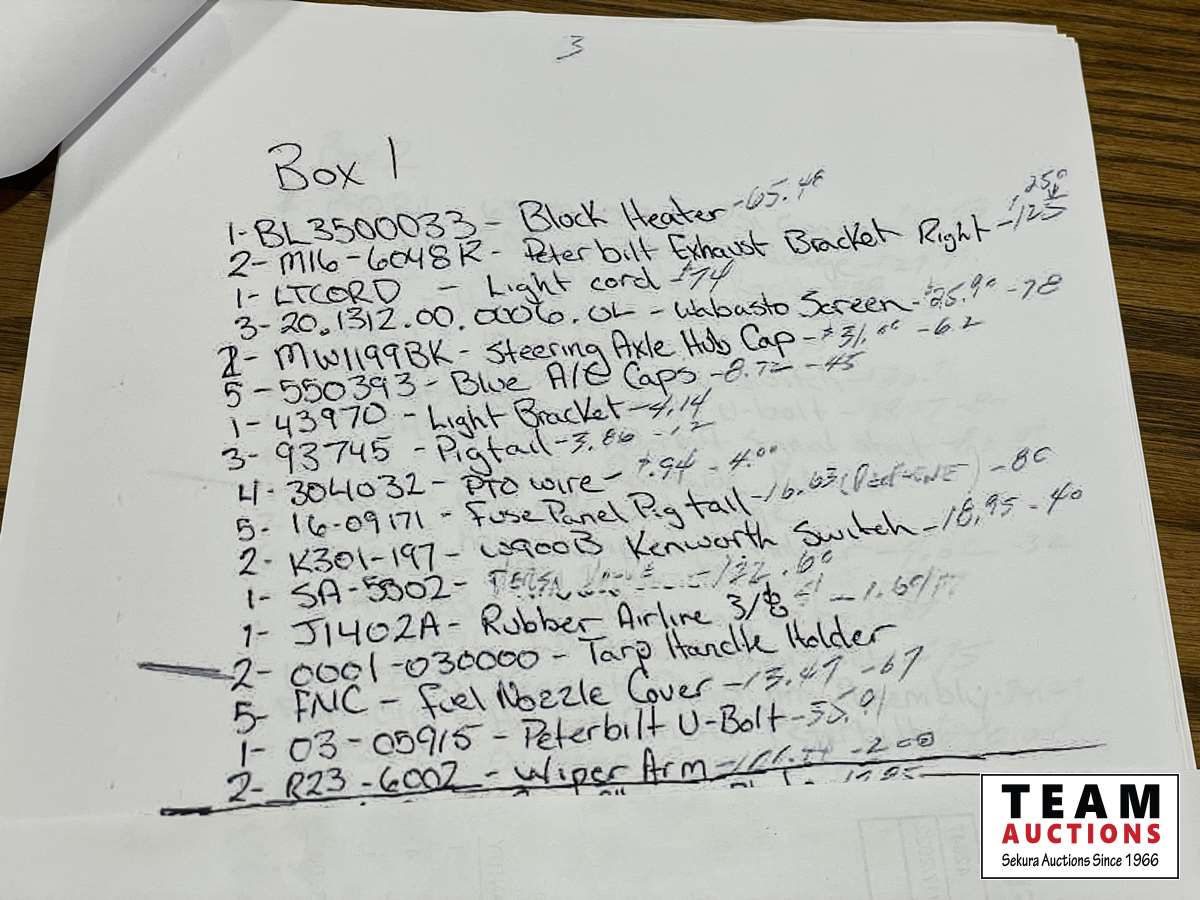 3
Box 1
250
1- BL3500033 - Block Heater - 65.48
2- M16-6048R - Peterbilt Exhaust Bracket Right - 125
1- LTCORD - Light cord - $74
3- 20.1312.00.0006.0L - Wabasto Screen - $25.90 - 78
2- MW1199BK - Steering Axle Hub Cap - $31.00 - 62
5- 550393 - Blue A/C Caps - 8.72 - 45
1- 43970 - Light Bracket - 4.14
3- 93745 - Pigtail - 3.86 - 12
4- 304032 - PTO wire - $.94 - 4.00
5- 16-09171 - Fuse Panel Pigtail - 16.63 - 80
2- K301-197 - W900B Kenworth Switch - 18.95 - 40
1- SA-5302 - - 122.60
1- J1402A - Rubber Airline 3/8
2- 0001-030000 - Tarp Handle Holder
5- FNC - Fuel Nozzle Cover - 13.47 - 67
1- 03-05915 - Peterbilt U-Bolt - 35.91
2- R23-6002 - Wiper Arm - 200
TEAM
AUCTIONS
Sekura Auctions Since 1966